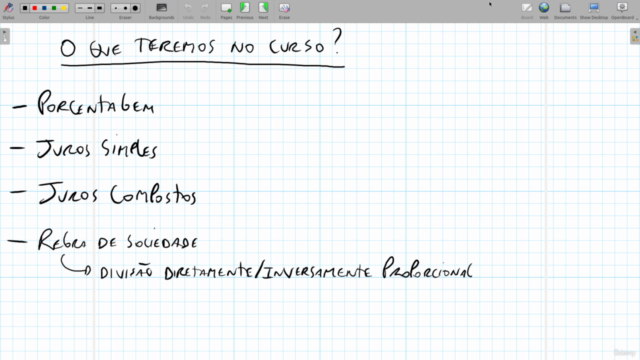 Stylus Color Line Eraser Backgrounds Pages Previous Next Erase Board Web Documents Show Desktop OpenBoard
O QUE TEREMOS NO CURSO?
— PORCENTAGEM
— JUROS SIMPLES
— JUROS COMPOSTOS
— REGRA DE SOCIEDADE
DIVISÃO DIRETAMENTE/INVERSAMENTE PROPORCIONAL